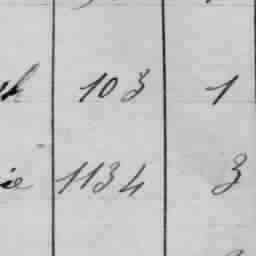 103 1
ie 1134 3